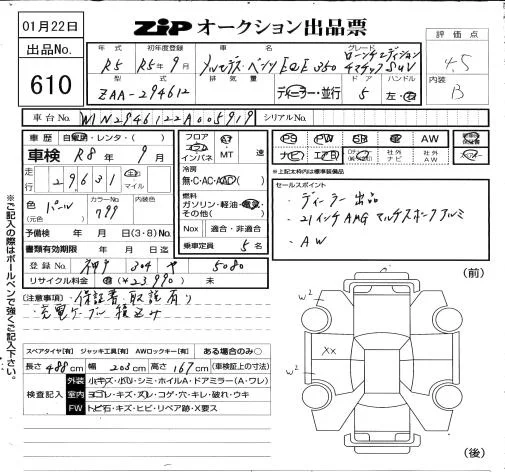 01月22日
ZIP オークション出品票
出品No.
610
評価点
4.5
内装
B
年式 初年度登録 車名 グレード
R5 R5年9月 メルセデス・ベンツ EQE 350 ローンチエディション
4マチック SUV
型式 排気量 ドア ハンドル
ZAA-294612 ディーラー・並行 5 左・右
車台No. W1N2946122A005919 シリアルNo.
車歴 自家用・レンタ・( )
車検 R8年9月
走行 29631 マイル
色 パール (元色)
カラーNo. 799
内装色
予備検 年 月 日(3・8)No.
書類有効期限 年 月 日迄
登録No. 神戸 304 や 5080
リサイクル料金 (¥23990) 未
フロア コラム インパネ AT・MT 速
冷房 無・C・AC・AAC( )
燃料 ガソリン・軽油・電気・その他( )
Nox 適合・非適合
乗車定員 5名
PS PW SR AW
ナビ エアB 社外ナビ 社外AW
*上記太枠内は標準装備品
セールスポイント
・ディーラー出品
・21インチAMGマルチスポークアルミ
・AW
(注意事項)・保証書、取説有り
・充電ケーブル積込み
スペアタイヤ[有] ジャッキ工具[有] AWロックキー[有] ある場合のみ○
長さ 488cm 幅 203cm 高さ 167cm (車検証上の寸法)
検査記入
外装 小キズ・小凹・シミ・ホイルA・ドアミラー(A・ワレ)
室内 ヨゴレ・キズ・スレ・コゲ・穴・キレ・破れ・ウキ
FW トビ石・キズ・ヒビ・リペア跡・X要ス
※ご記入の際はボールペンで強くご記入下さい。
(前)
W2
XX
W2
(後)